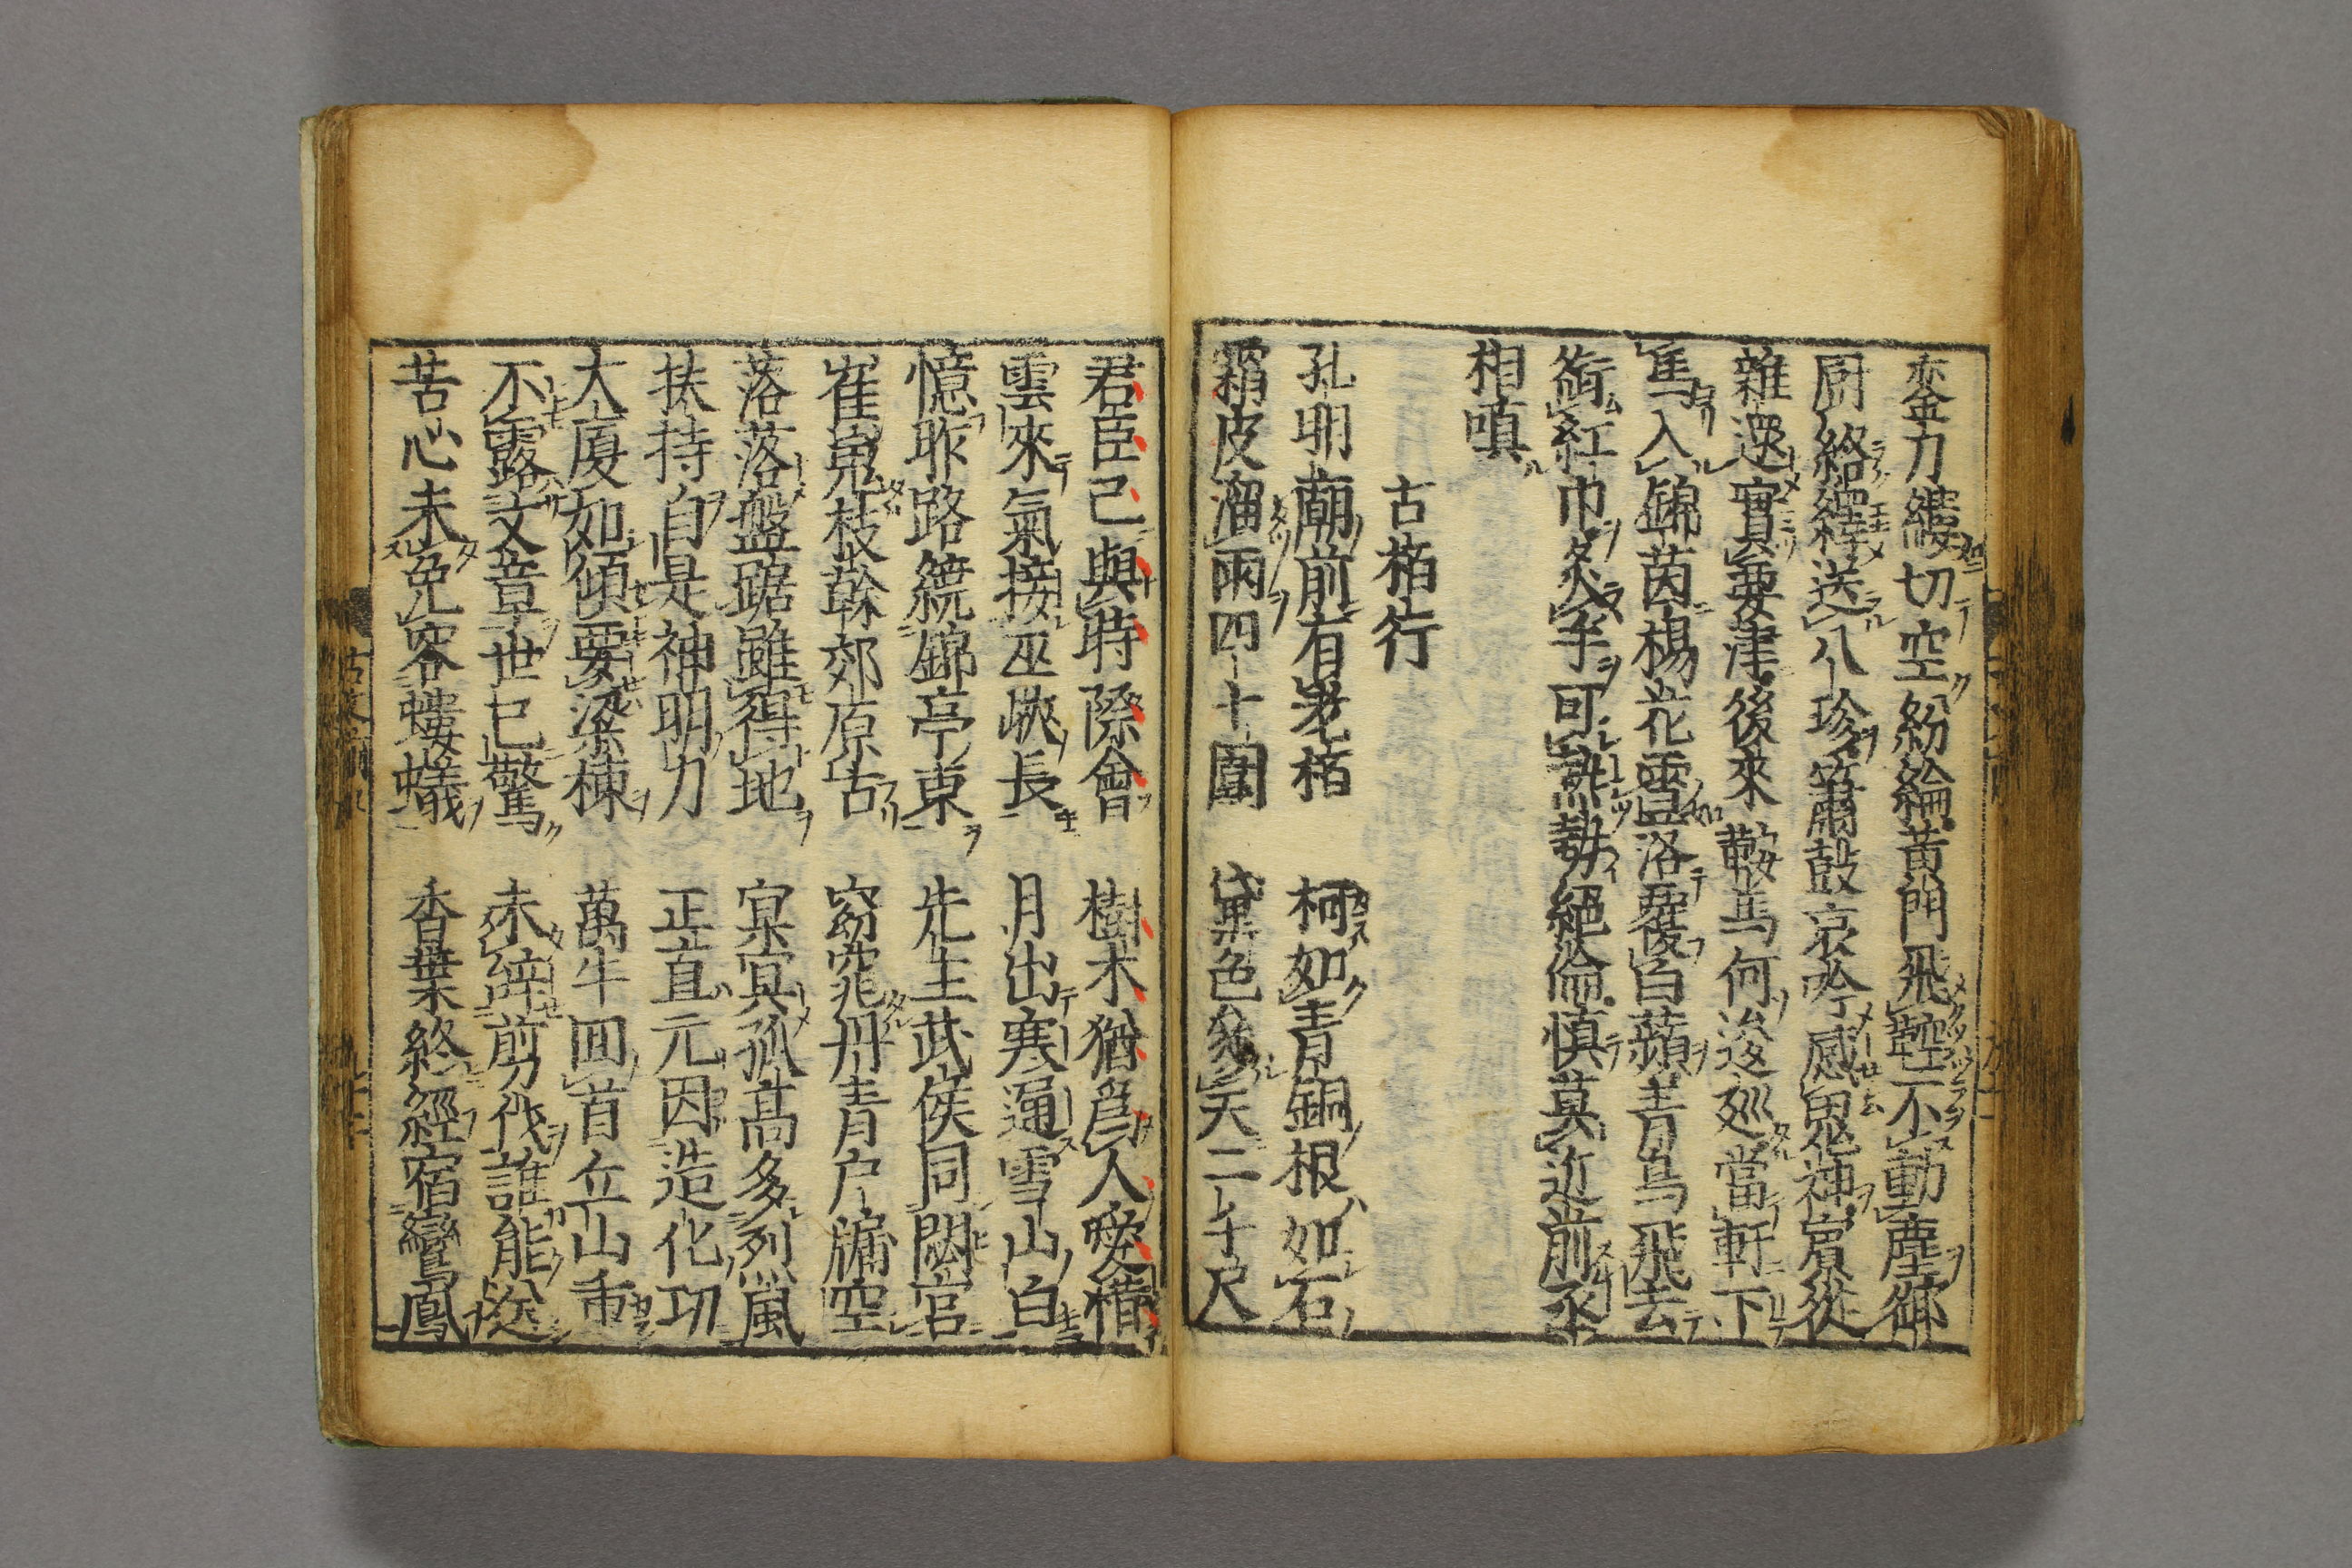 鸞刀縷切空紛綸黄門飛鞚不動塵御
厨絡繹送八珍簫鼓哀吟感鬼神賔從
雜遝實要津後來鞍馬何逡廵當軒下
馬入錦茵楊花雪落覆白蘋青鳥飛去
銜紅巾炙手可熱勢絕倫慎莫近前丞
相嗔
古栢行
孔明廟前有老栢 柯如青銅根如石
霜皮溜雨四十圍 黛色參天二千尺
君臣已與時際會 樹木猶爲人愛惜
雲來氣接巫峽長 月出寒通雪山白
憶昨路繞錦亭東 先生武侯同閟宮
崔嵬枝幹郊原古 窈窕丹青户牖空
落落盤踞雖得地 㝠㝠孤高多烈風
扶持自是神明力 正直元因造化功
大廈如傾要梁棟 萬牛回首丘山重
不露文章世已驚 未辭剪伐誰能送
苦心未免容螻蟻 香葉終經宿鸞鳳